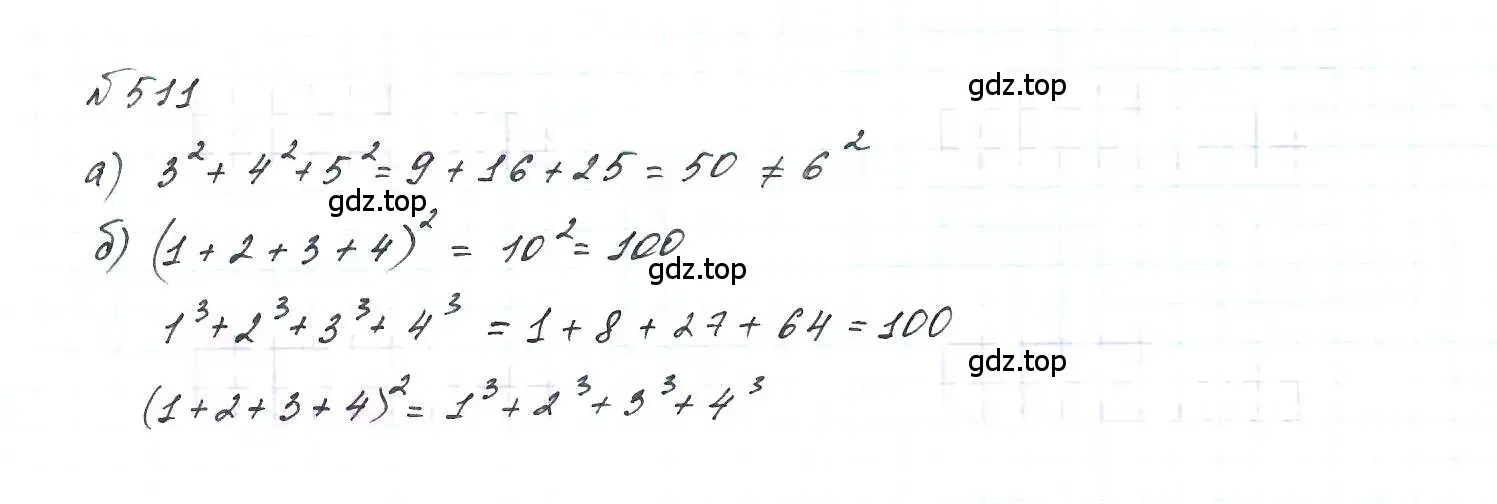 № 511
gdz.top
а) 3² + 4² + 5² = 9 + 16 + 25 = 50 ≠ 6²
gdz.top
б) (1 + 2 + 3 + 4)² = 10² = 100
gdz.top
1³ + 2³ + 3³ + 4³ = 1 + 8 + 27 + 64 = 100
gdz.top
(1 + 2 + 3 + 4)² = 1³ + 2³ + 3³ + 4³